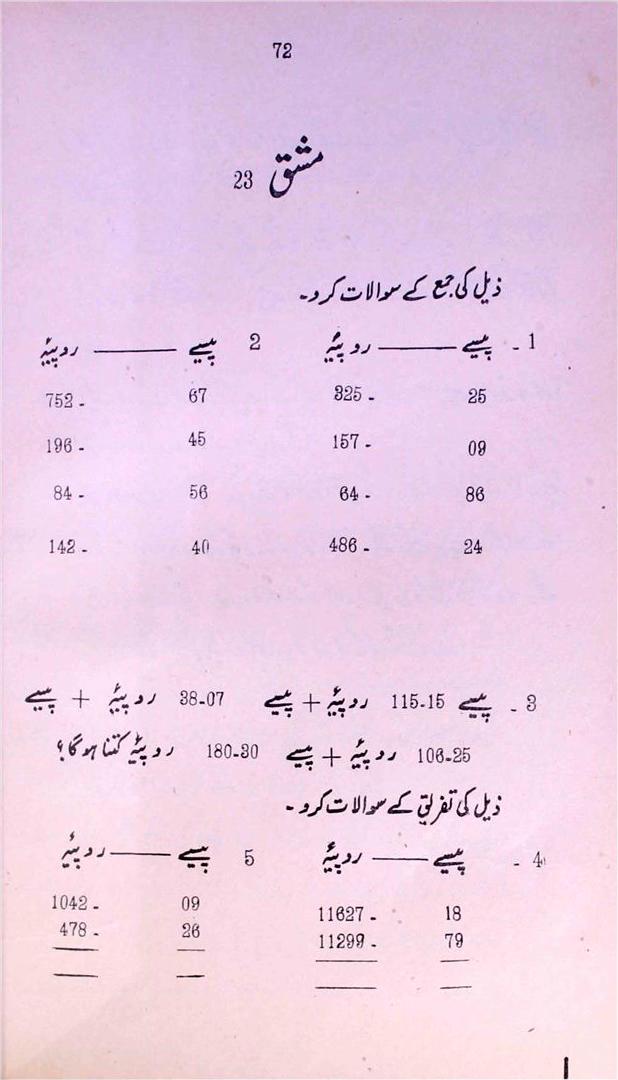 72
مشق 23
ذیل کی جمع کے سوالات کرو۔
1 - پیسے ——— روپیۓ 2 پیسے ——— روپیۓ
25 325 - 67 752 -
09 157 - 45 196 -
86 64 - 56 84 -
24 486 - 40 142 -
3 - پیسے 115-15 روپیۓ + پیسے 38-07 روپیۓ + پیسے
106-25 روپیۓ + پیسے 180-30 روپیۓ کتنا ہوگا؟
ذیل کی تفریق کے سوالات کرو۔
4 - پیسے ——— روپیۓ 5 پیسے ——— روپیۓ
18 11627 - 09 1042 -
79 11299 - 26 478 -